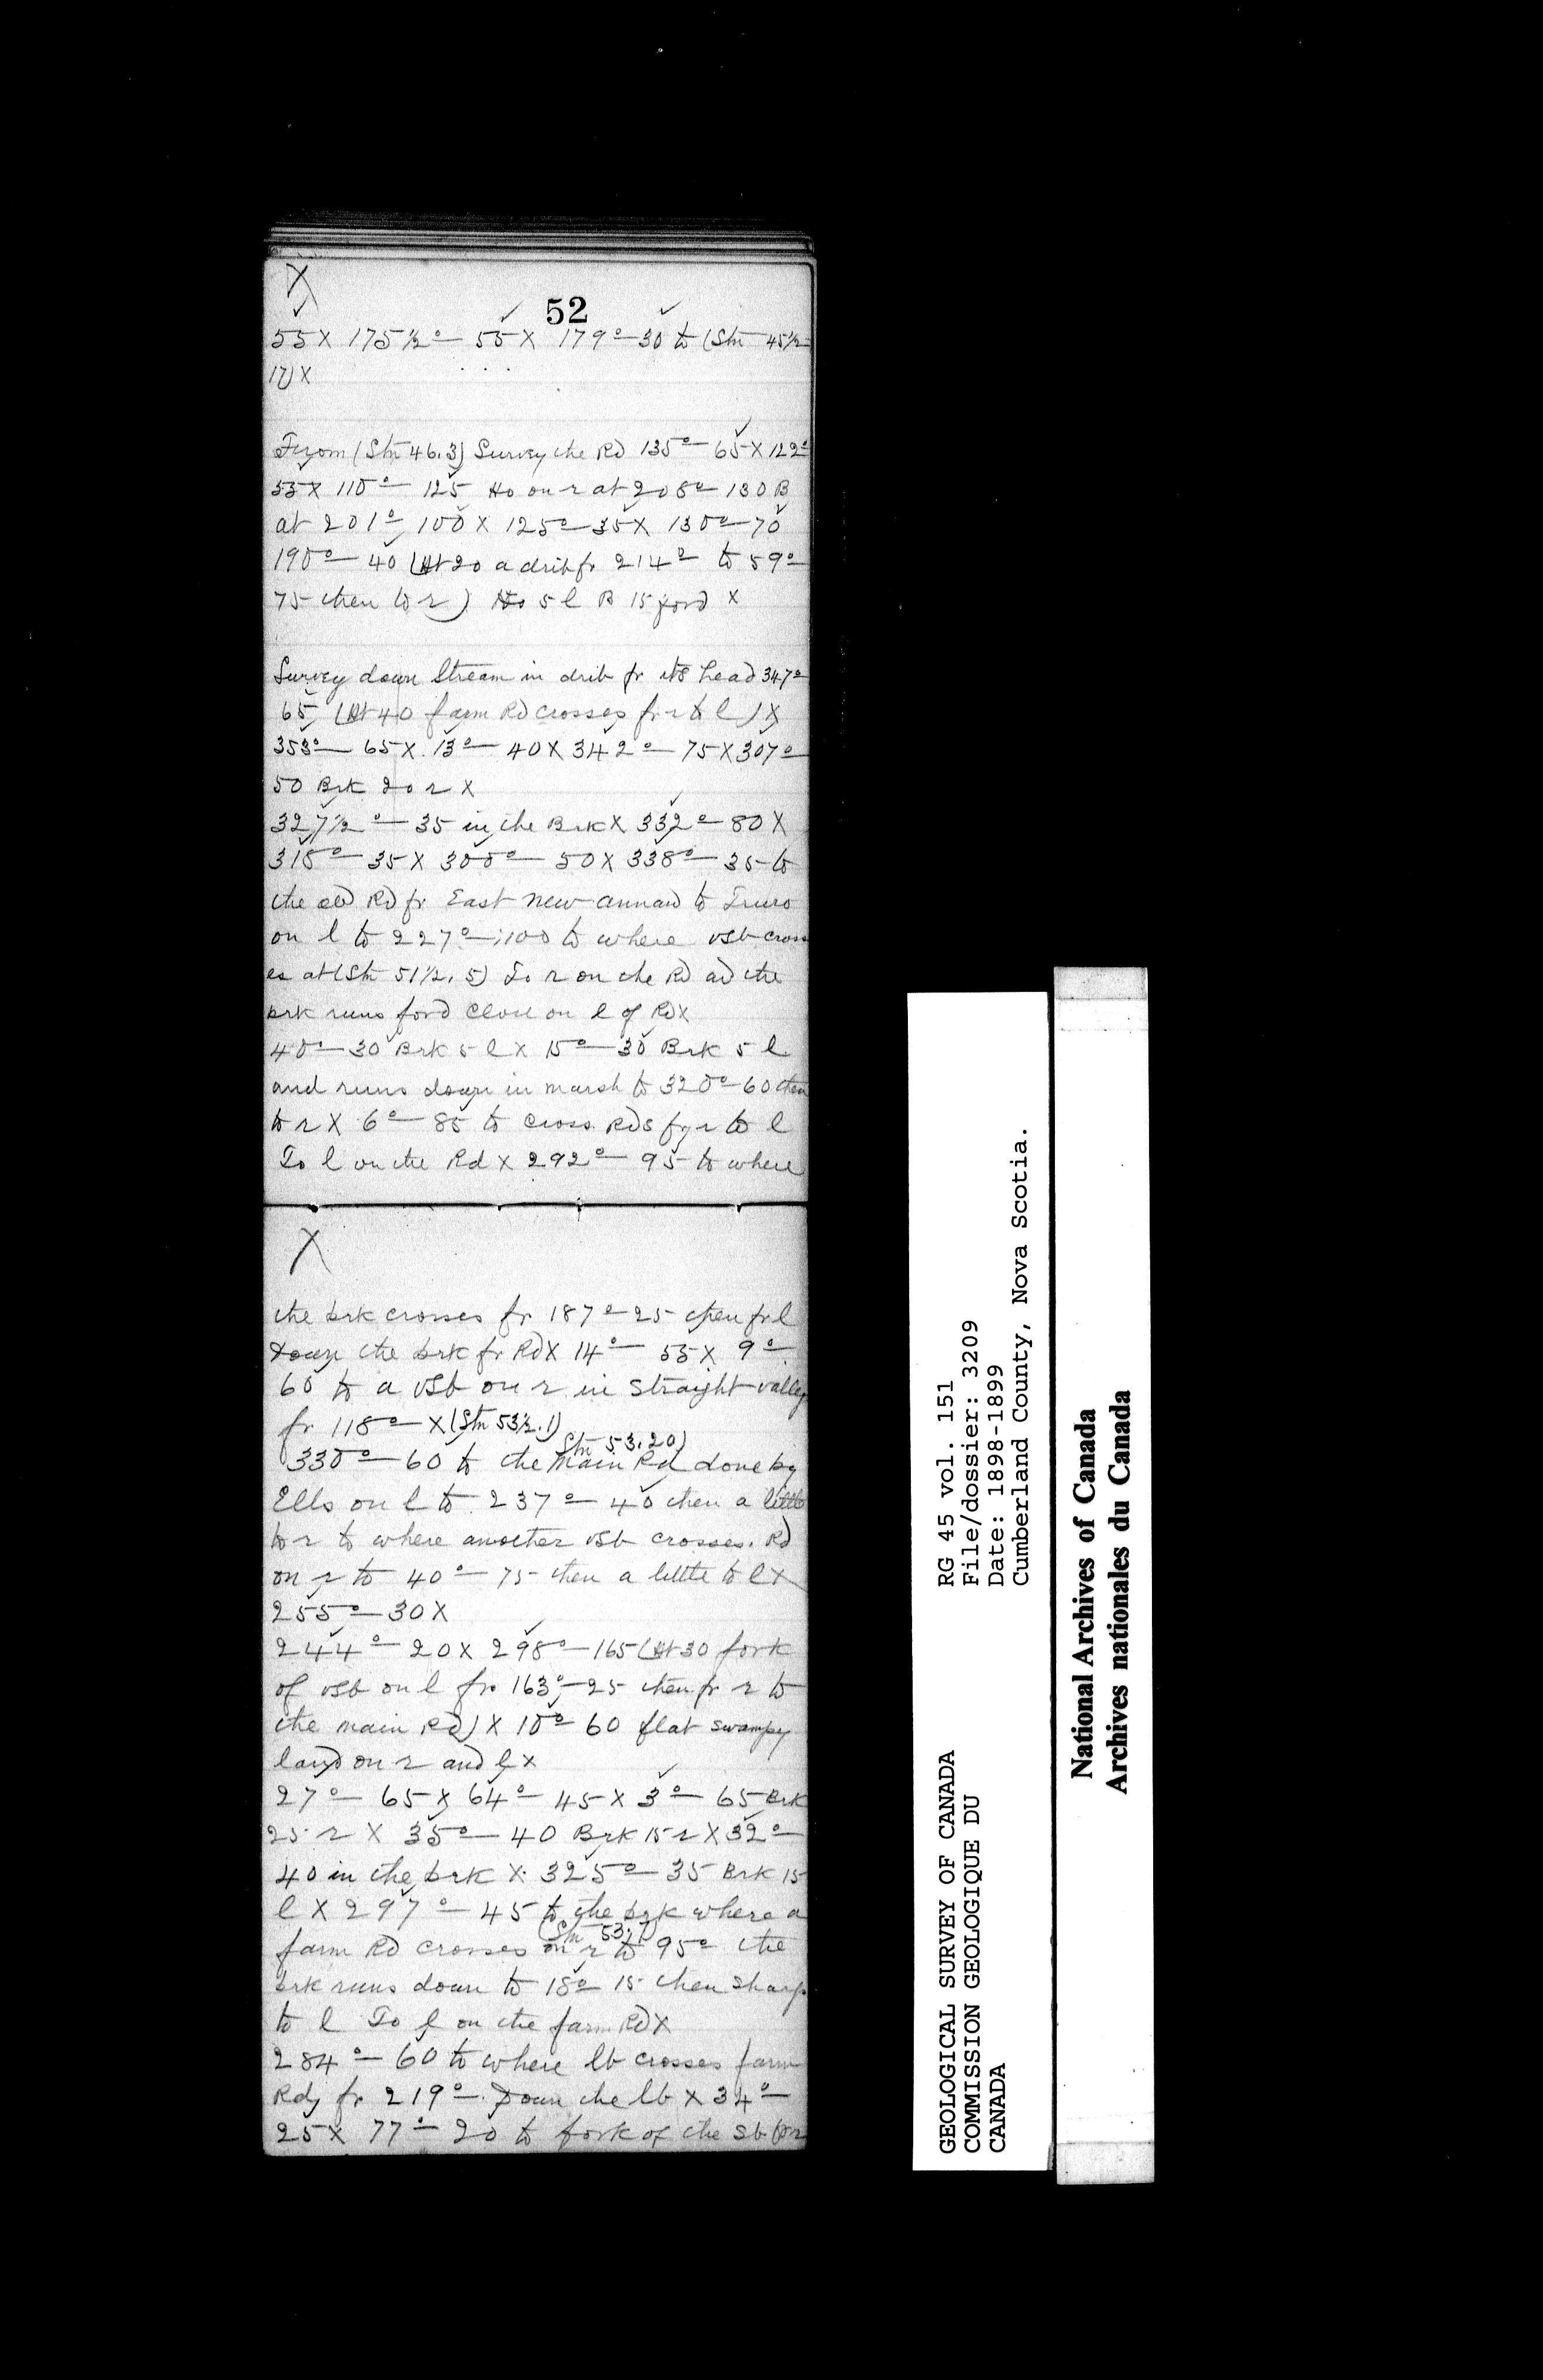 X
52
55 X 175½° — 55 X 179° — 30 to (Stn 45½
17) X
From (Stn 46.3) Survey the Rd 135° — 65 X 122°
55 X 110° — 125 Ho on r at 208° 130 B
at 201° 100 X 125° — 35 X 130° — 70
190° — 40 (At 20 a drib fr 214° to 59°
75 then to r) Ho 5 l B 15 ford X
Survey down Stream in drib fr its head 347°
65 (At 40 farm Rd crosses fr r to l) X
353° — 65 X 13° — 40 X 342° — 75 X 307°
50 Brk 20 r X
327½° — 35 in the Brk X 332° — 80 X
318° — 35 X 300° — 50 X 338° — 35 to
the old Rd fr East New Annan to Truro
on l to 227° — 100 to where vsb cross
es at (Stn 51½.5) To r on the Rd ad the
brk runs ford close on l of Rd X
40° — 30 Brk 5 l X 15° — 30 Brk 5 l
and runs down in marsh to 320° — 60 then
to r X 6° — 85 to cross Rds fr r to l
To l on the Rd X 292° — 95 to where
X
the brk crosses fr 187° — 25 then fr l
Down the brk fr Rd X 14° — 55 X 9° —
60 to a vsb on r in straight valley
fr 118° — X (Stn 53½.1)
Stn 53.20)
330° — 60 to the Main Rd done by
Ells on l to 237° — 40 then a little
to r to where another vsb crosses. Rd
on r to 40° — 75 then a little to l X
255° — 30 X
244° — 20 X 298° — 165 (At 30 fork
of vsb on l fr 163° — 25 then fr r to
the main Rd) X 10° 60 flat swampy
land on r and l X
27° — 65 X 64° — 45 X 3° — 65 Brk
25 r X 35° — 40 Brk 15 r X 32° —
40 in the brk X 325° — 35 Brk 15
l X 297° — 45 to the brk where a
(Stn 53.7)
farm Rd crosses on r to 95° the
brk runs down to 18° 15 then sharp
to l To l on the farm Rd X
284° — 60 to where lb crosses farm
Rd fr 219° Down the lb X 34° —
25 X 77° — 20 to fork of the sb for
GEOLOGICAL SURVEY OF CANADA
COMMISSION GEOLOGIQUE DU
CANADA
RG 45 vol. 151
File/dossier: 3209
Date: 1898-1899
Cumberland County, Nova Scotia.
National Archives of Canada
Archives nationales du Canada